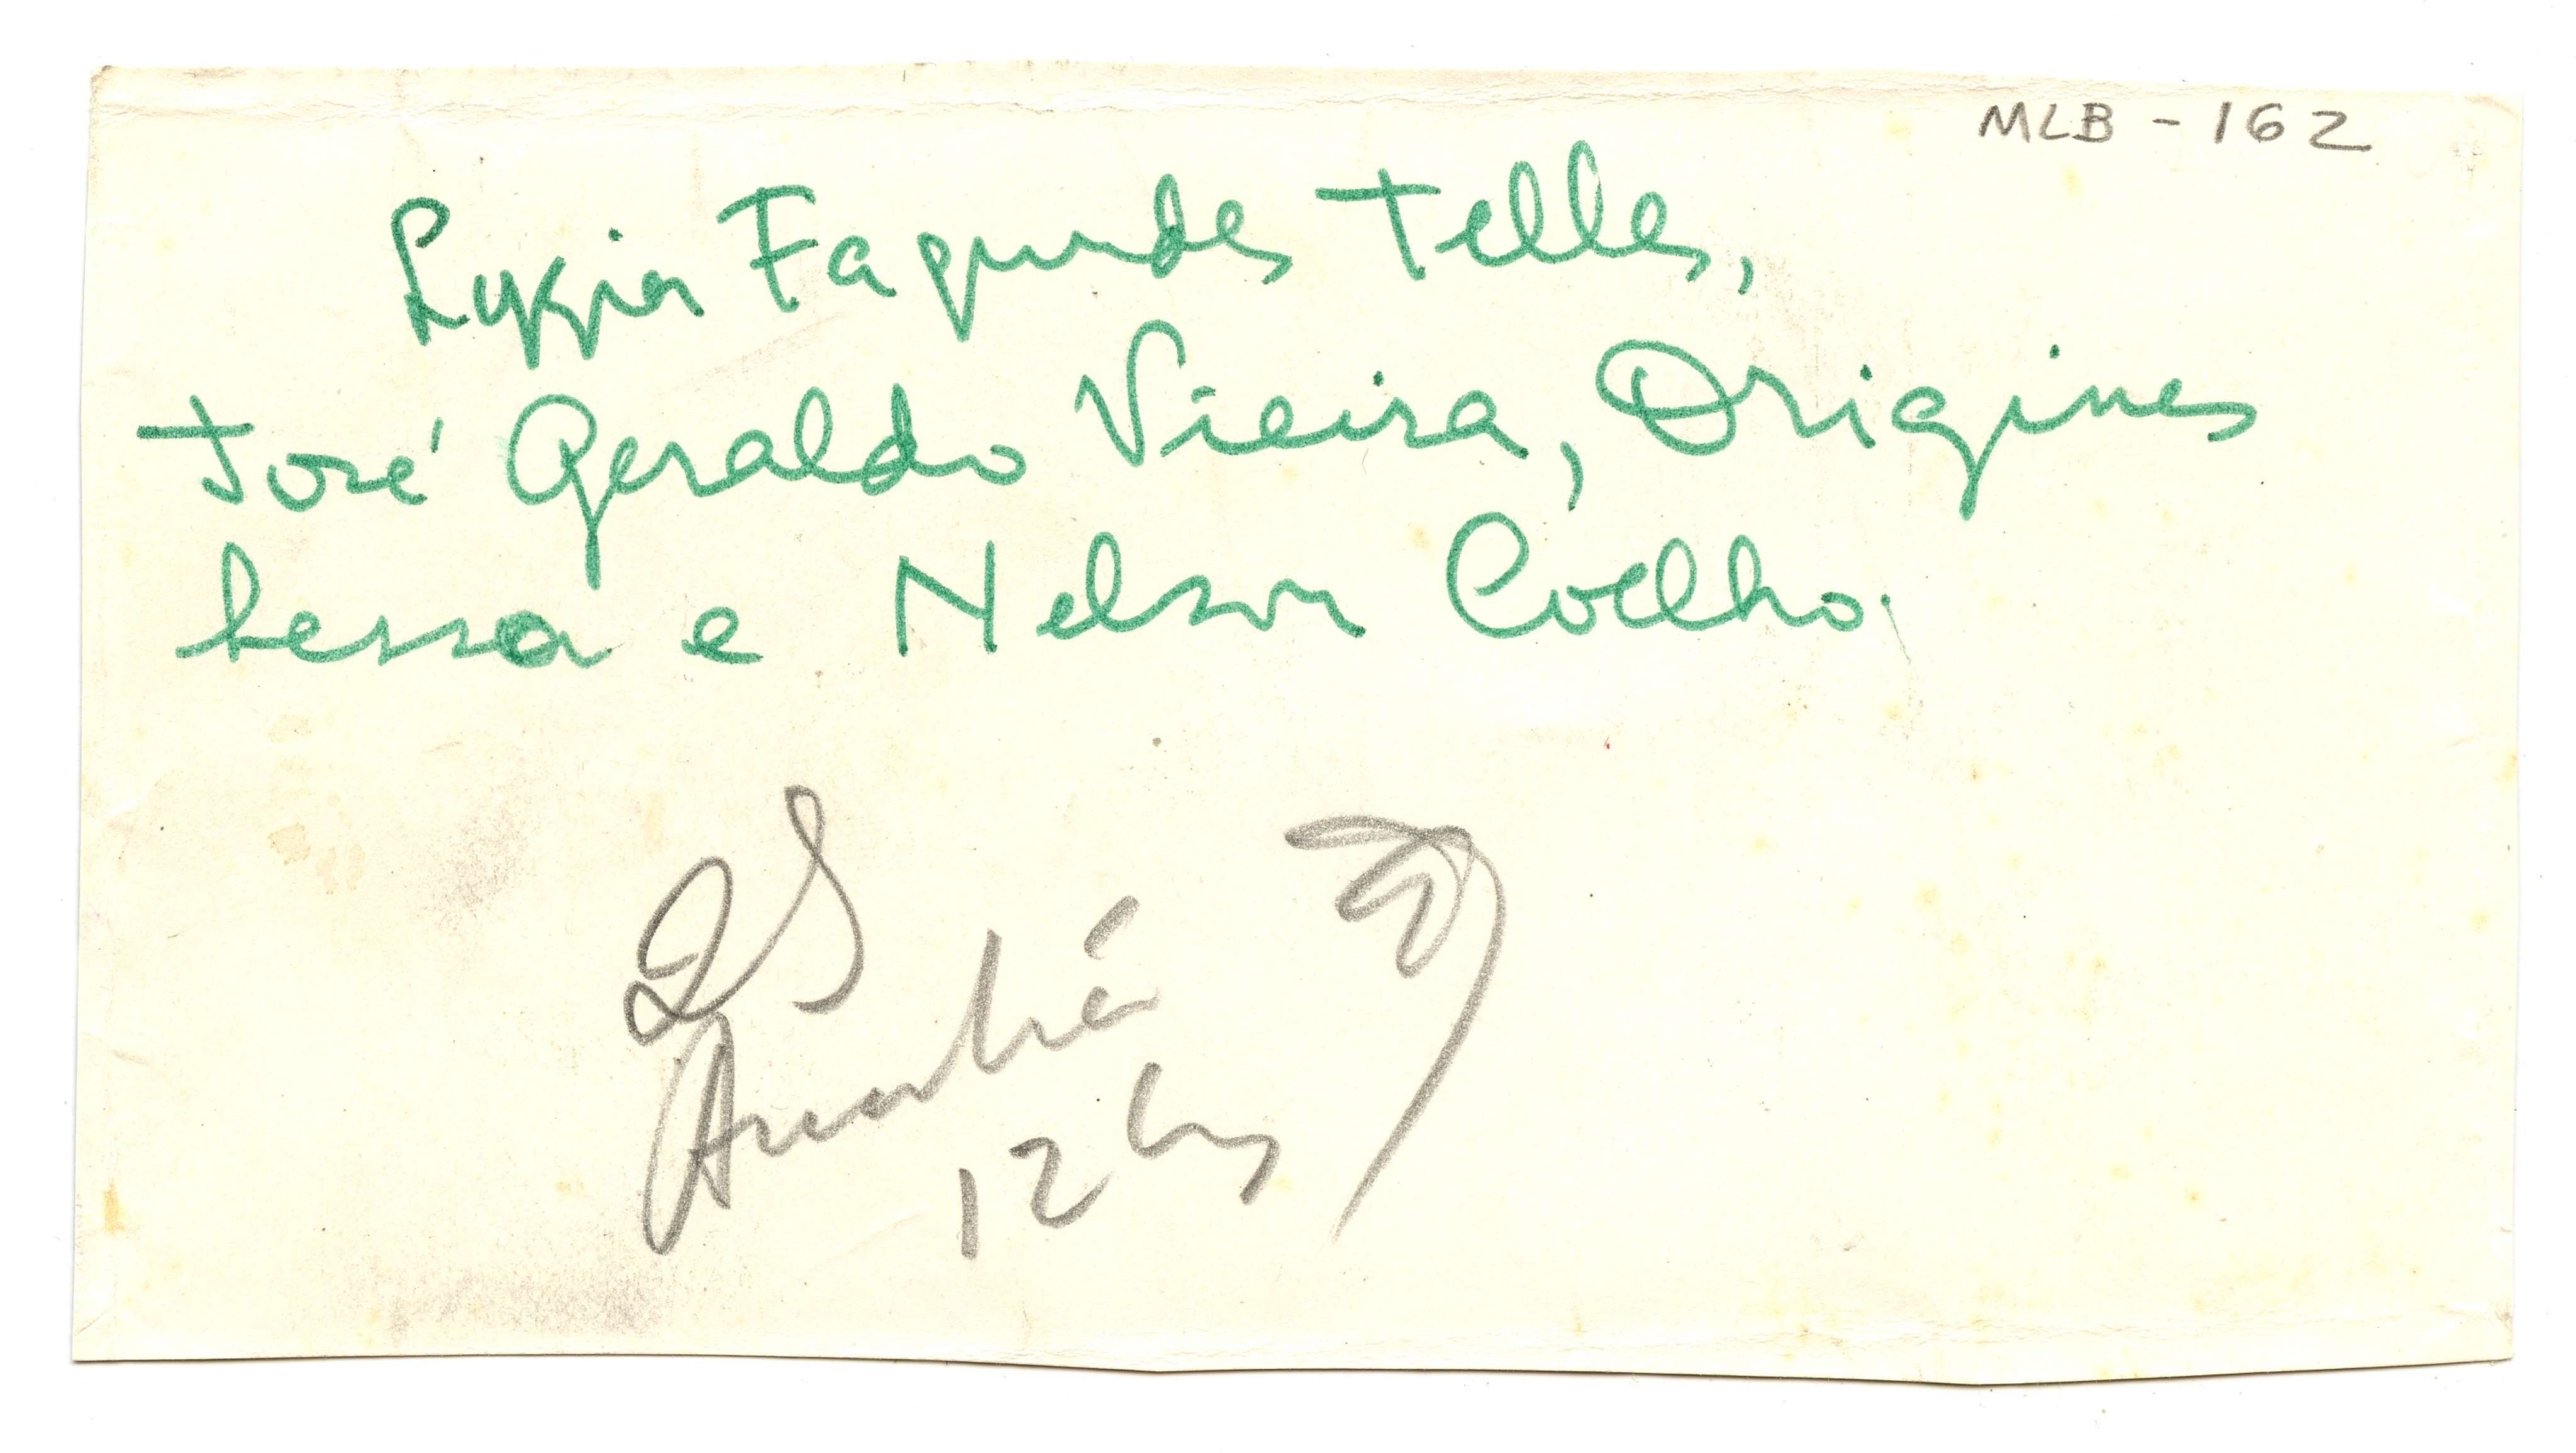 MLB - 162
Lygia Fagundes Telles,
José Geraldo Vieira, Origines
Lessa e Nelson Coelho.
12 hs